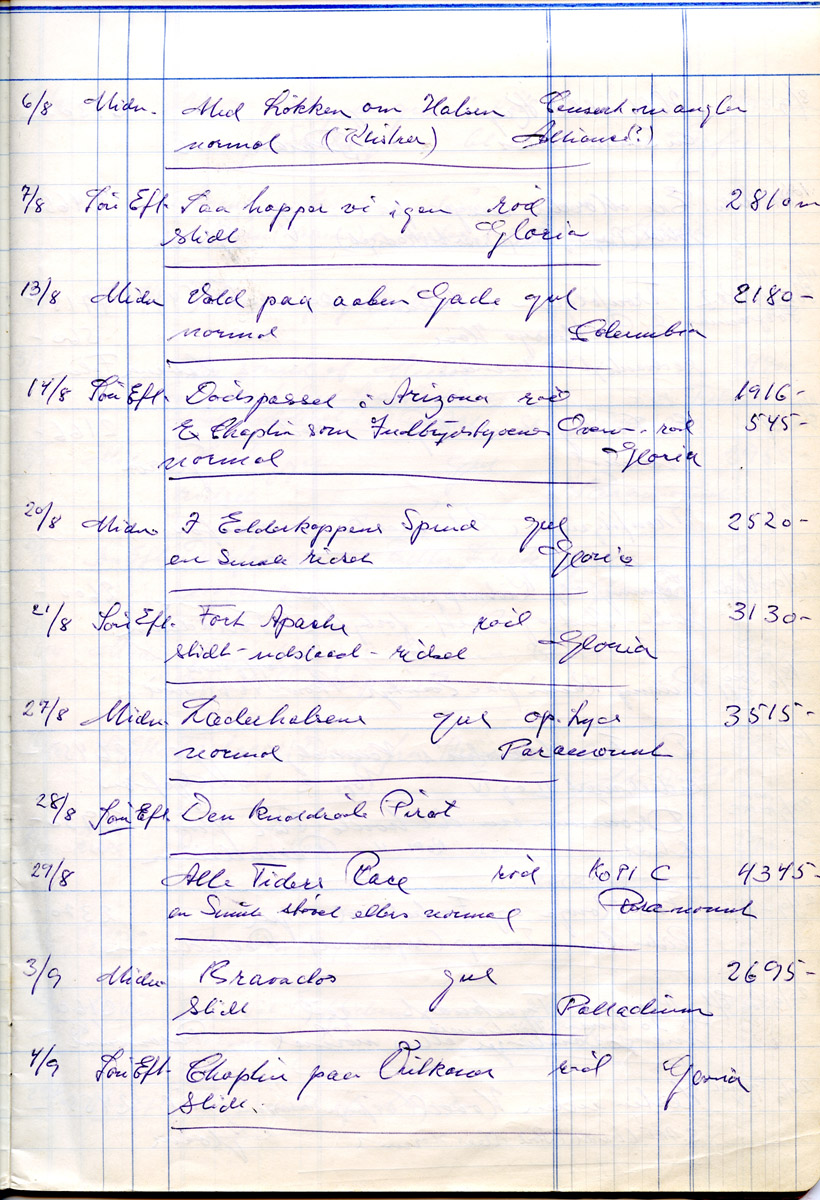 6/8 Midn. Med Løkken om Halsen Censurk mangler
normal (Klistrer) Alliance(?)
7/8 Søn Eft. Saa hopper vi igen rød 2810m
Slidt Gloria
13/8 Midn Vold paa aaben Gade gul 2180-
normal Columbia
14/8 Søn Eft. Dødspasset i Arizona rød 1916-
E Chaplin som rød 545-
normal Gloria
20/8 Midn I Edderkoppens Spind gul 2520-
en Smule ridset Gloria
21/8 Søn Eft. Fort Apache rød 3130-
Slidt - udslaaet - ridset Gloria
27/8 Midn. Læderhalsene gul op. Lyd 3515-
normal Paramount
28/8 Søn Eft. Den knaldrøde Pirat
29/8 Alle Tiders Race rød KOPI C 4345-
en Smule støvet ellers normal Paramount
3/9 Midn Bravados gul 2695-
Slidt Palladium
4/9 Søn Eft. Chaplin paa rød Gloria
Slidt.